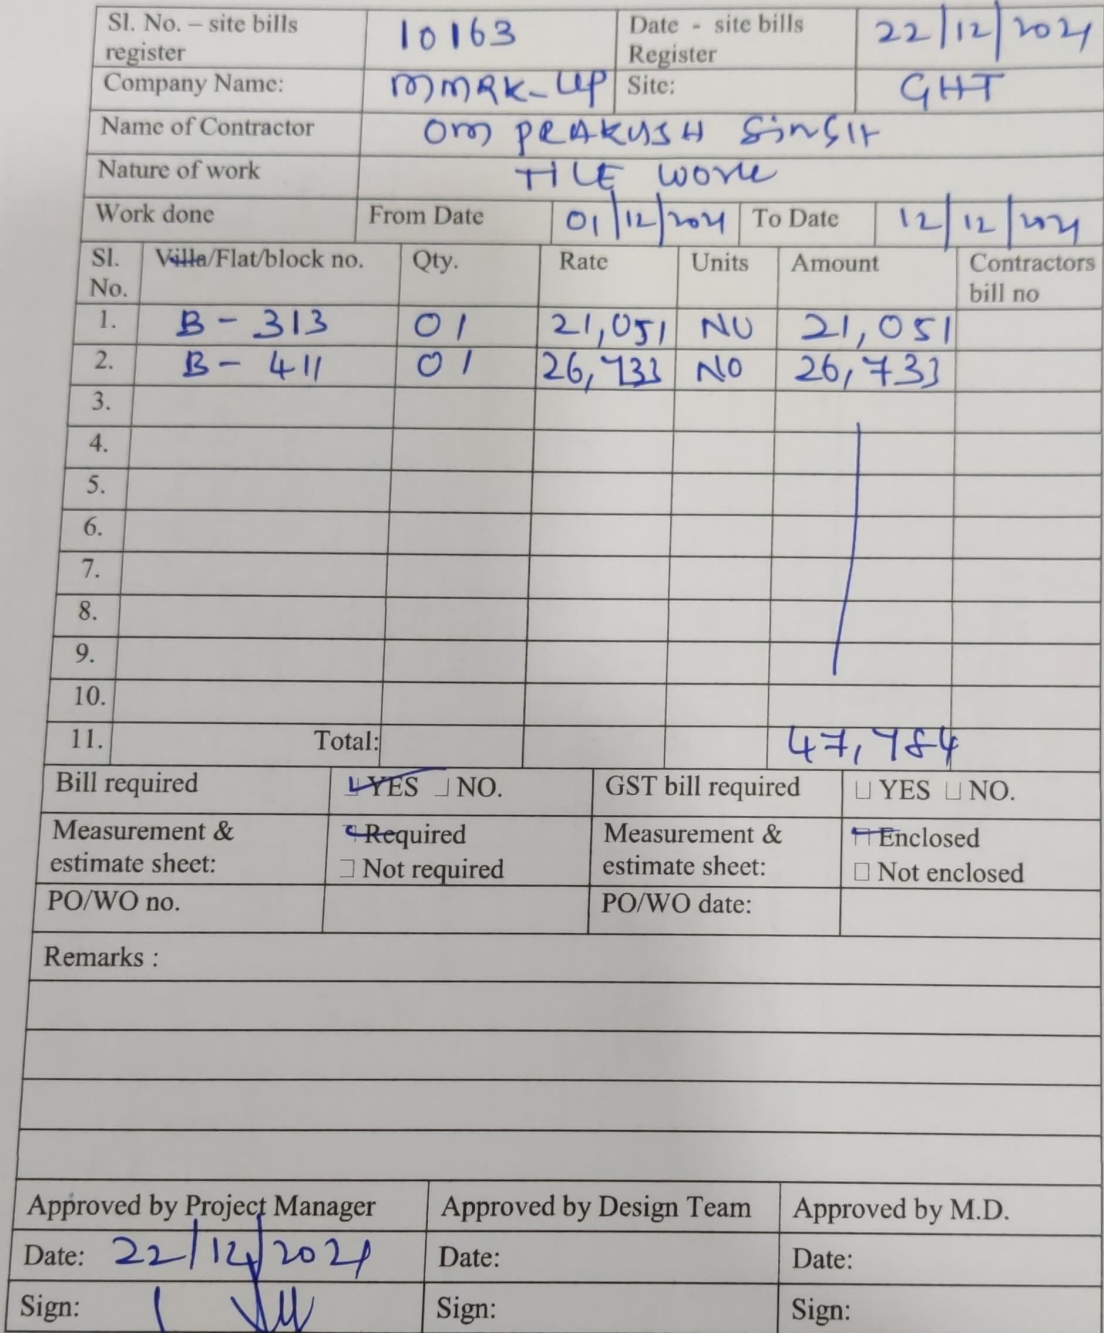 Sl. No. – site bills register 10163 Date - site bills Register 22/12/2021
Company Name: MMRK-UP Site: GHT
Name of Contractor OM PRAKUSH SINGH
Nature of work TILE WORK
Work done From Date 01/12/2021 To Date 12/12/2021
Sl. No. Villa/Flat/block no. Qty. Rate Units Amount Contractors bill no
1. B - 313 01 21,051 NO 21,051
2. B - 411 01 26,733 NO 26,733
3.
4.
5.
6.
7.
8.
9.
10.
11. Total: 47,784
Bill required YES NO. GST bill required YES NO.
Measurement & estimate sheet: Required Not required Measurement & estimate sheet: Enclosed Not enclosed
PO/WO no. PO/WO date:
Remarks :
Approved by Project Manager Approved by Design Team Approved by M.D.
Date: 22/12/2021 Date: Date:
Sign: Sign: Sign: